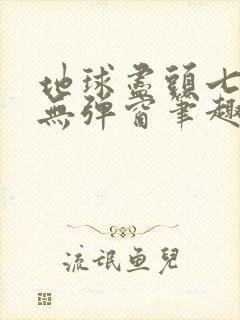 地球盡頭七
無彈窗筆趣
流氓魚兒